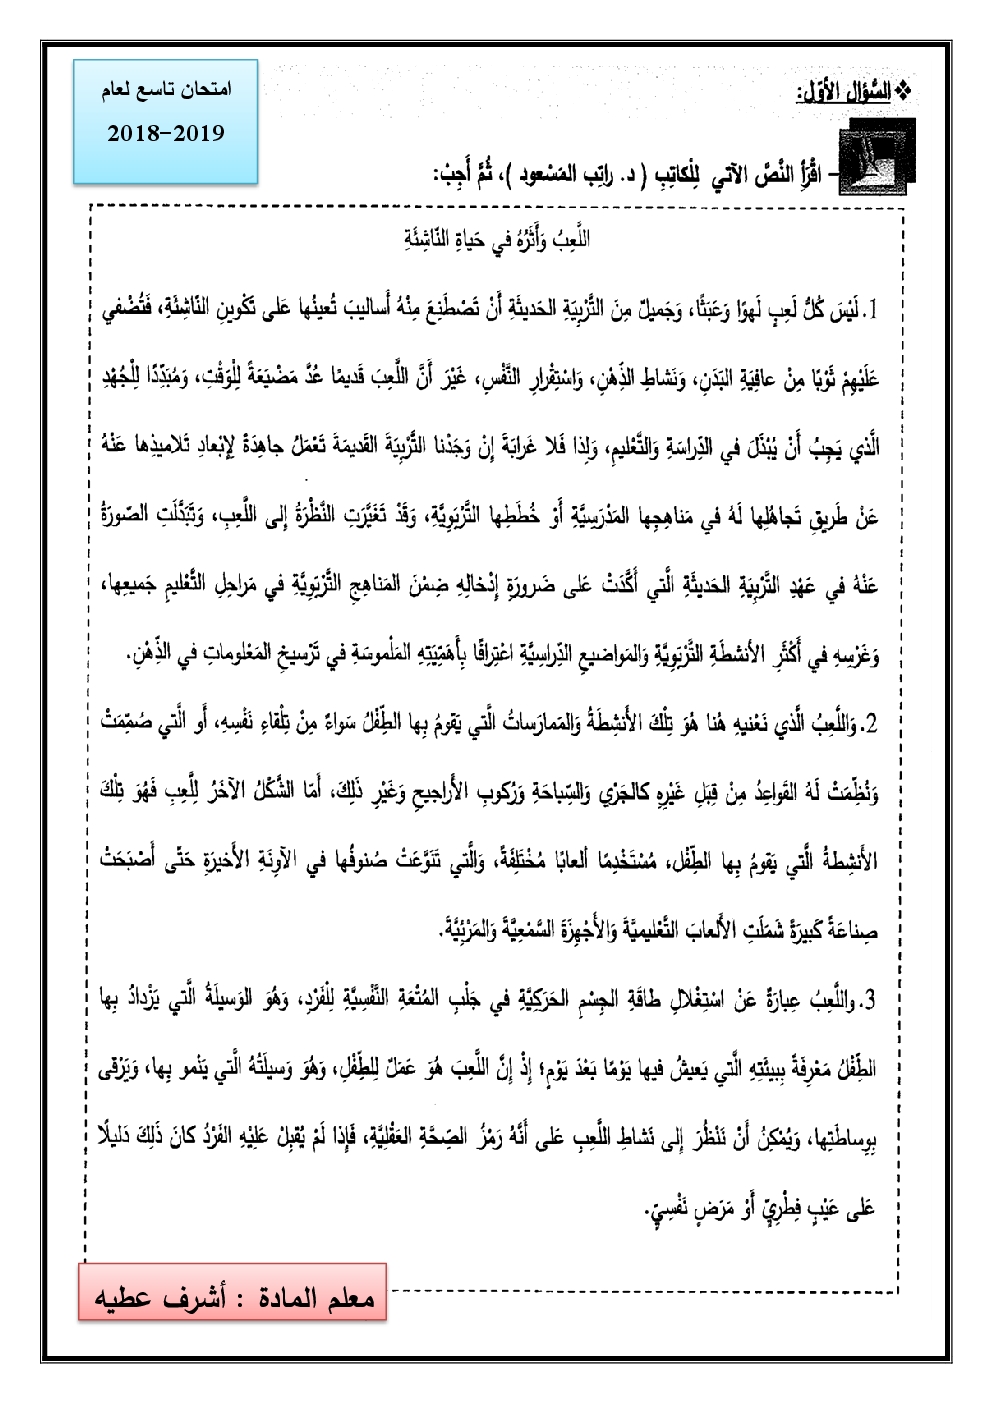 امتحان تاسع لعام
2018-2019
❖ السُّؤال الأوّل:
– اقْرَأ النَّصَّ الآتي لِلْكاتِبِ ( د. راتِب المَسْعود )، ثُمَّ أَجِبْ:
اللَّعِبُ وَأَثَرُهُ في حَياةِ النّاشِئَةِ
1. لَيْسَ كُلُّ لَعِبٍ لَهوًا وَعَبَثًا، وَجَميلٌ مِنَ التَّرْبِيَةِ الحَديثَةِ أَنْ تَصْطَنِعَ مِنْهُ أَساليبَ تُعينُها عَلى تَكْوينِ النّاشِئَةِ، فَتُضْفي
عَلَيْهِمْ ثَوْبًا مِنْ عافِيَةِ البَدَنِ، وَنَشاطِ الذِّهْنِ، وَاسْتِقْرارِ النَّفْسِ، غَيْرَ أَنَّ اللَّعِبَ قَديمًا عُدَّ مَضْيَعَةً لِلْوَقْتِ، وَمُبَدِّدًا لِلْجُهْدِ
الَّذي يَجِبُ أَنْ يُبْذَلَ في الدِّراسَةِ وَالتَّعْليمِ، وَلِذا فَلا غَرابَةَ إِنْ وَجَدْنا التَّرْبِيَةَ القَديمَةَ تَعْمَلُ جاهِدَةً لِإِبْعادِ تَلاميذِها عَنْهُ
عَنْ طَريقِ تَجاهُلِها لَهُ في مَناهِجِها المَدْرَسِيَّةِ أَوْ خُطَطِها التَّرْبَوِيَّةِ، وَقَدْ تَغَيَّرَتِ النَّظْرَةُ إِلى اللَّعِبِ، وَتَبَدَّلَتِ الصّورَةُ
عَنْهُ في عَهْدِ التَّرْبِيَةِ الحَديثَةِ الَّتي أَكَّدَتْ عَلى ضَرورَةِ إِدْخالِهِ ضِمْنَ المَناهِجِ التَّرْبَوِيَّةِ في مَراحِلِ التَّعْليمِ جَميعِها،
وَغَرْسِهِ في أَكْثَرِ الأنشطَةِ التَّرْبَوِيَّةِ وَالمَواضيعِ الدِّراسِيَّةِ اعْتِرافًا بِأَهَمِّيَّتِهِ المَلْموسَةِ في تَرْسيخِ المَعْلوماتِ في الذِّهْنِ.
2. وَاللَّعِبُ الَّذي نَعْنيهِ هُنا هُوَ تِلْكَ الأَنْشِطَةُ وَالمُمارَساتُ الَّتي يَقومُ بِها الطِّفْلُ سَواءٌ مِنْ تِلْقاءِ نَفْسِهِ، أَو الَّتي صُمِّمَتْ
وَنُظِّمَتْ لَهُ القَواعِدُ مِنْ قِبَلِ غَيْرِهِ كَالجَرْيِ وَالسِّباحَةِ وَرُكوبِ الأَراجيحِ وَغَيْرِ ذَلِكَ، أَمّا الشَّكْلُ الآخَرُ لِلَّعِبِ فَهُوَ تِلْكَ
الأَنشِطَةُ الَّتي يَقومُ بِها الطِّفْل، مُسْتَخْدِمًا ألعابًا مُخْتَلِفَةً، وَالَّتي تَنَوَّعَتْ صُنوفُها في الآوِنَةِ الأَخيرَةِ حَتّى أَصْبَحَتْ
صِناعَةً كَبيرَةً شَمَلَتِ الأَلْعابَ التَّعْليمِيَّةَ وَالأَجْهِزَةَ السَّمْعِيَّةَ وَالمَرْئِيَّةَ.
3. واللَّعِبُ عِبارَةٌ عَنْ اسْتِغْلالِ طاقَةِ الجِسْمِ الحَرَكِيَّةِ في جَلْبِ المُتْعَةِ النَّفْسِيَّةِ لِلْفَرْدِ، وَهُوَ الوَسيلَةُ الَّتي يَزْدادُ بِها
الطِّفْلُ مَعْرِفَةً بِبيئَتِهِ الَّتي يَعيشُ فيها يَوْمًا بَعْدَ يَوْمٍ؛ إِذْ إِنَّ اللَّعِبَ هُوَ عَمَلٌ لِلطِّفْلِ، وَهُوَ وَسيلَتُهُ الَّتي يَنْمو بِها، وَيَرْقى
بِوِساطَتِها، وَيُمْكِنُ أَنْ نَنْظُرَ إِلى نَشاطِ اللَّعِبِ عَلى أَنَّهُ رَمْزُ الصِّحَّةِ العَقْلِيَّةِ، فَإِذا لَمْ يُقبِلْ عَلَيْهِ الفَرْدُ كانَ ذَلِكَ دَليلًا
عَلى عَيْبٍ فِطْرِيٍّ أَوْ مَرَضٍ نَفْسِيٍّ.
معلم المادة : أشرف عطيه